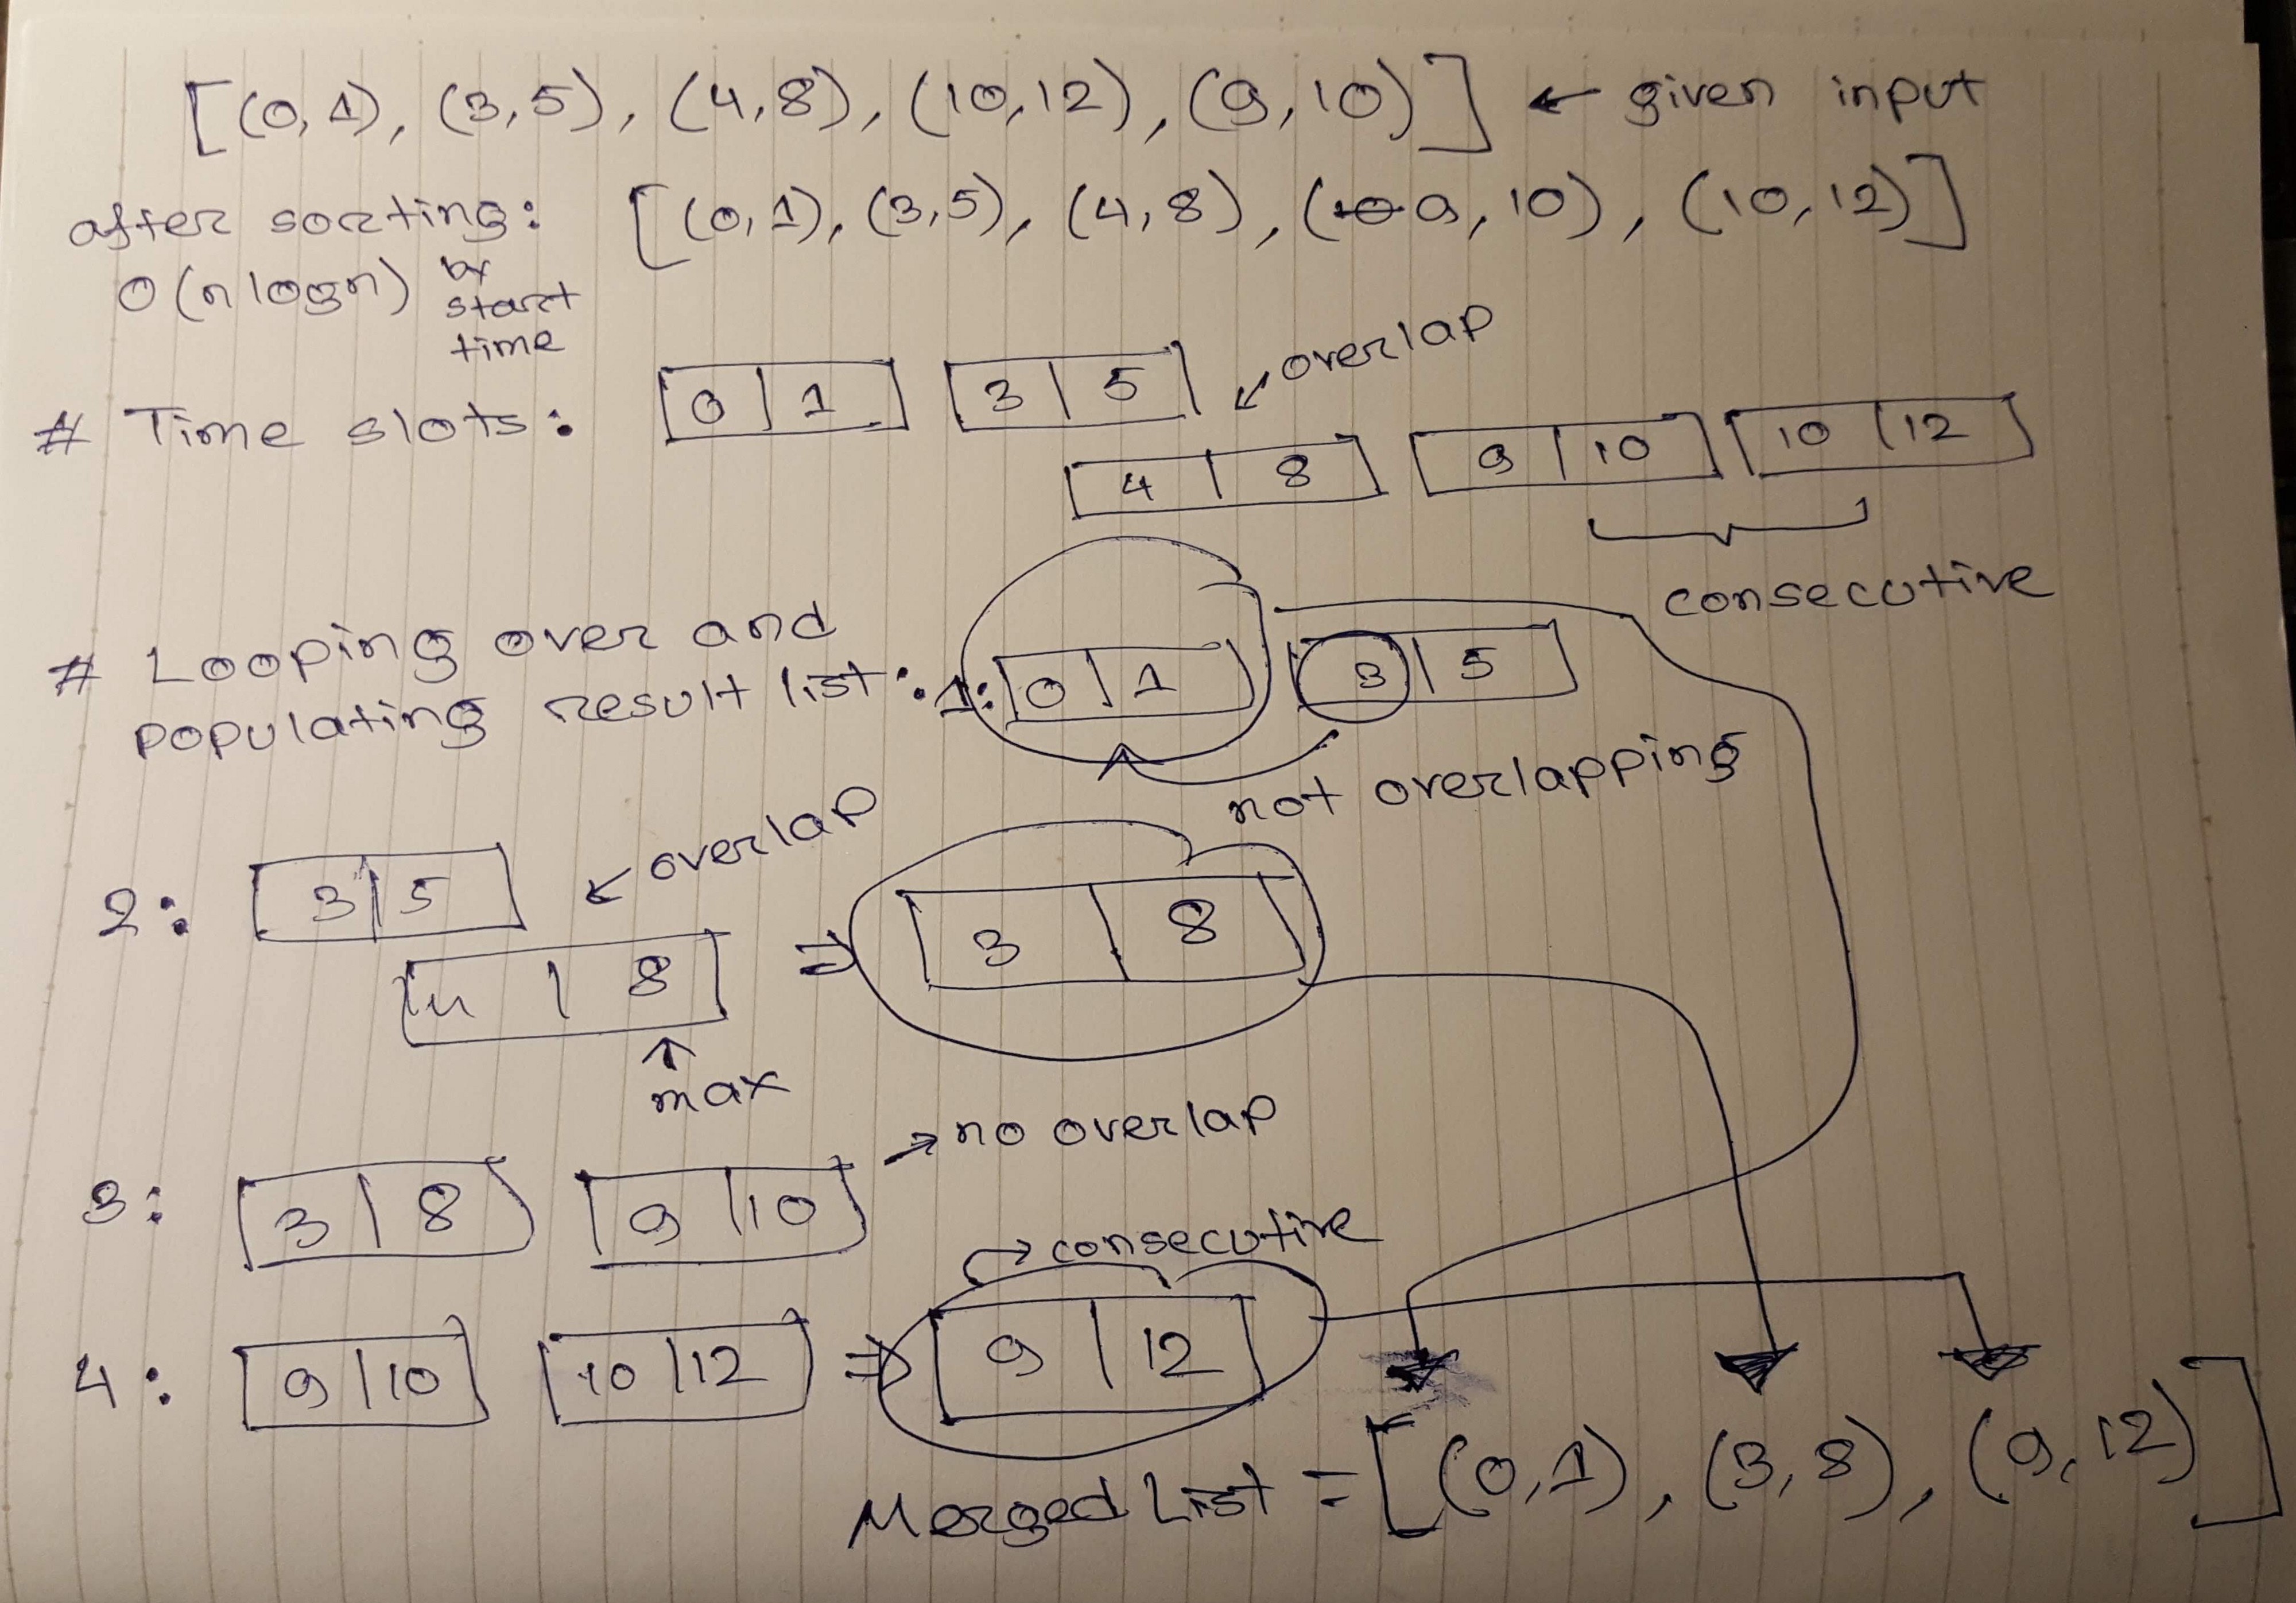 [(0,1), (3,5), (4,8), (10,12), (9,10)] ← given input
after sorting: [(0,1), (3,5), (4,8), (10 9, 10), (10,12)]
O(n logn) by
start
time
overlap
# Time slots: 0 | 1 3 | 5
4 | 8 9 | 10 10 | 12
consecutive
# Looping over and
populating result list: 1: 0 | 1 3 | 5
not overlapping
← overlap
2: 3 | 5
4 | 8 ⇒ 3 | 8
↑
max
→ no overlap
3: 3 | 8 9 | 10
→ consecutive
4: 9 | 10 10 | 12 ⇒ 9 | 12
Merged List = [(0,1), (3,8), (9,12)]